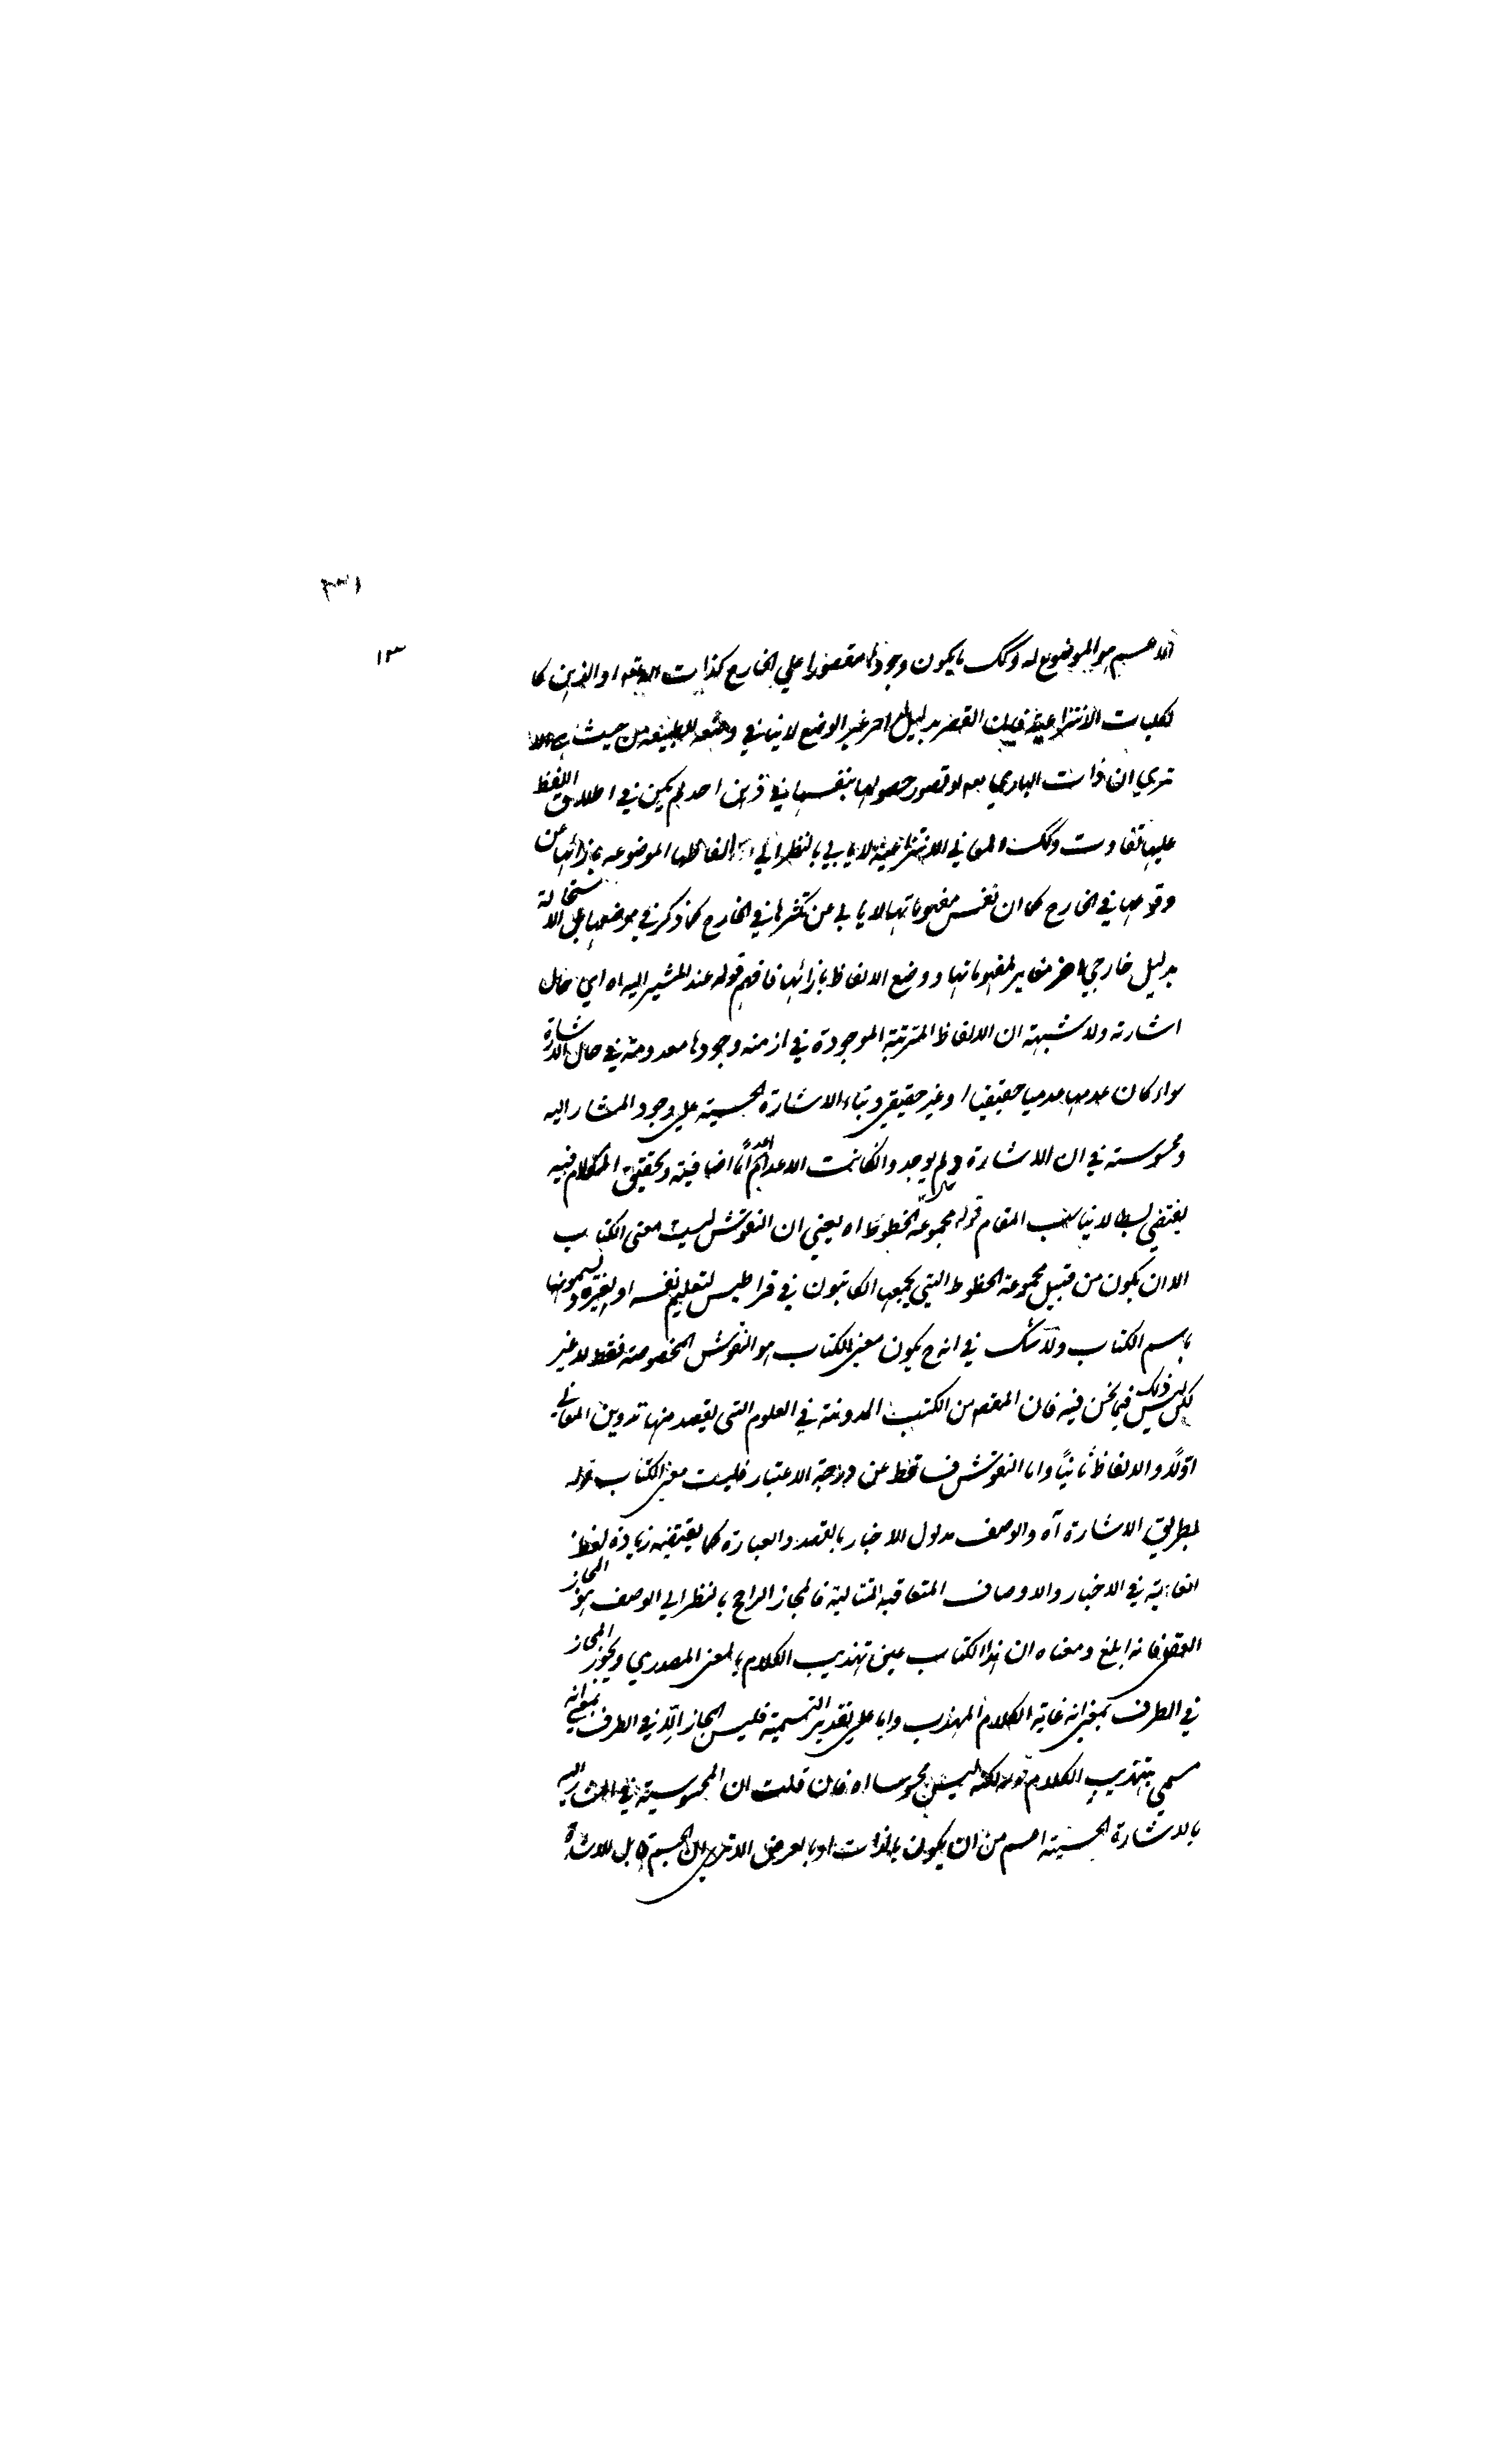 ١٣١
١٣
الاعم هو الموضوع له وكك ما يكون وجودها مقصورا علي الخارج كذات الله تعه او الذهن كا
لكليات الانتزاعية فان القصر بدليل اخر غير الوضع لا ينافي وضعه للطبيعة من حيث هي الا
تري ان ذات الباري تعه لو تصور حصولها بنفسها في ذهن احد لم يكن في اطلاق اللفظ
عليها تفاوت وكك المعاني الانتزاعية لا يابي بالنظر الي الفاظها الموضوعه بازائها عن
وقوعها في الخارج كما ان نفس مفهوماتها لا يابي عن تكثرها في الخارج كما ذكر في موضعها بل الاستحالة
بدليل خارجي اخر مغاير لمفهوماتها ووضع الالفاظ بازائها فافهم قوله عند المشير اليه اه اي حال
اشارته ولا شبهة ان الالفاظ المترتبة الموجودة في ازمنه وجودها معدومة في حال الاشارة
سواء كان عدمها عدميا حقيقيا او غير حقيقي وبناء الاشارة الحسية علي وجود المشار اليه
ومحسوسته في ان الاشارة ولم يوجد وانكانت الاعدام اعداما اضافية وتحقيق الكلام فيه
يقتضي بسطا لا يناسب المقام قوله مجموعة الخطوط اه يعني ان النقوش ليست معنى الكتاب
الا ان يكون من قبيل مجموعة الخطوط التي يجمعها الكاتبون في قراطيس لتعليم نفسه او لغيره ويسمونها
باسم الكتاب ولا شك في انه ح يكون معنى الكتاب هو النقوش المخصوصة فقط لا غير
لكن ليس ذلك فيما نحن فيه فان المقصد من الكتب المدونة في العلوم التي يقصد منها تدوين المعاني
اولًا والالفاظ ثانيًا واما النقوش فساقط عن درجة الاعتبار فليست معنى الكتاب قوله
بطريق الاشارة آه والوصف مدلول الاخبار بالقصد والعبارة كما يقتضيه زيادة لفظ
الغاية في الاخبار والاوصاف المتعاقبة المتتالية فالمجاز الراجح بالنظر الي الوصف هو المجاز
العقلي فانه ابلغ ومعناه ان هذا الكتاب عين تهذيب الكلام بالمعنى المصدري ويجوز المجاز
في الطرف بمعنى انه غاية الكلام المهذب واما علي تقدير التسمية فليس المجاز الا في الطرف بمعني انه
مسمي بتهذيب الكلام قوله لكنه ليس محسوسا اه فان قلت ان المحسوسية في المشار اليه
بالاشارة الحسية اعم من ان يكون بالذات او بالعرض الا تري ان الجسم قابل للاشارة